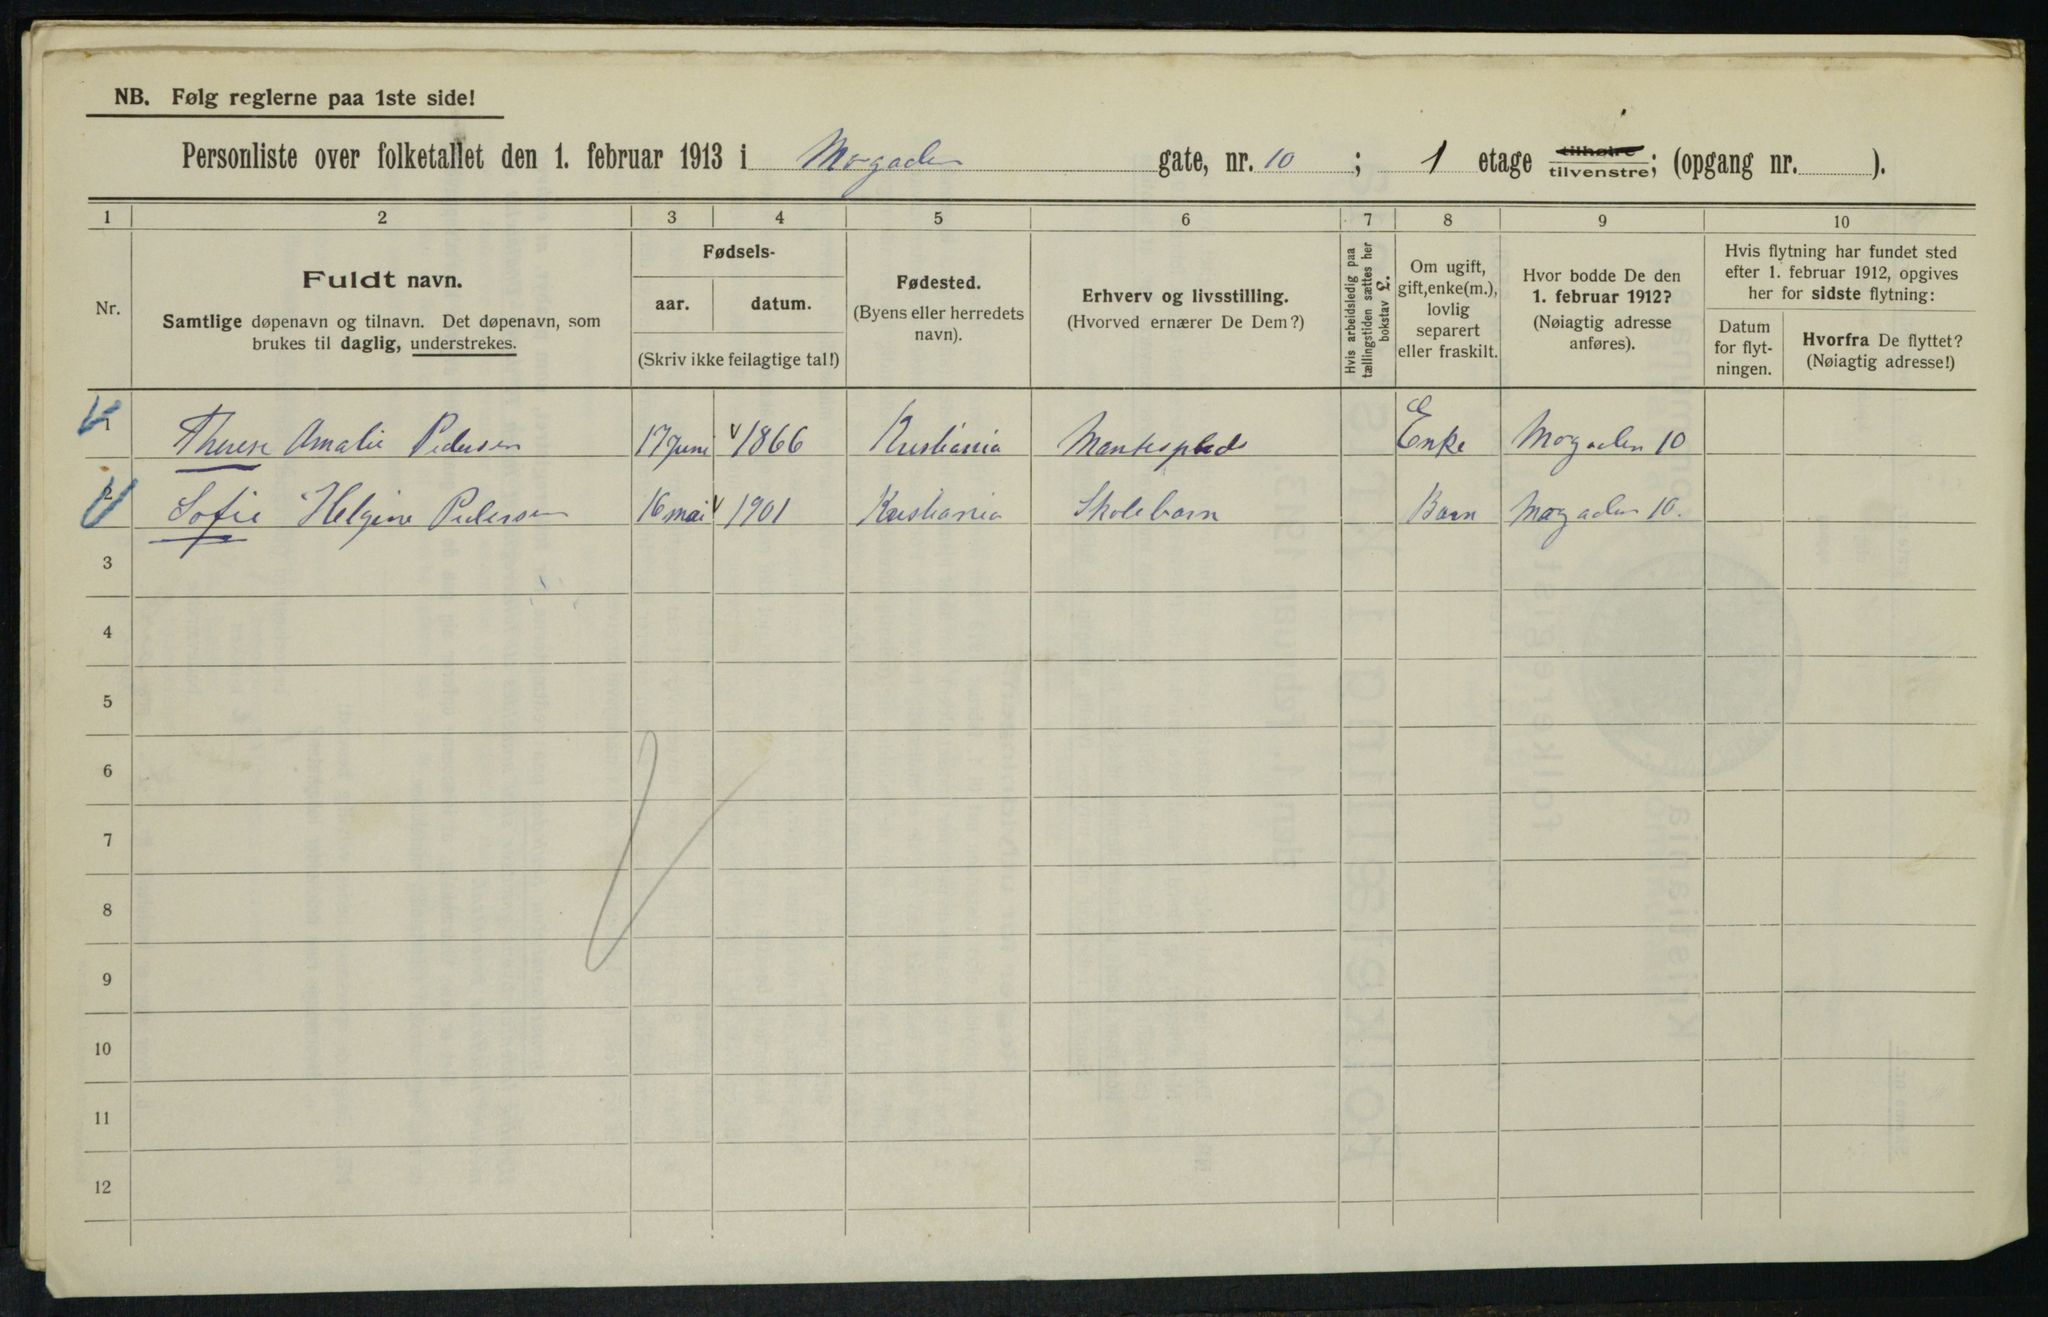 NB. Følg reglerne paa 1ste side!
Personliste over folketallet den 1. februar 1913 i Mogaden gate, nr. 10 ; 1 etage tilhøire tilvenstre; (opgang nr. ).
1 2 3 4 5 6 7 8 9 10
Nr.
Fuldt navn.
Samtlige døpenavn og tilnavn. Det døpenavn, som
brukes til daglig, understrekes.
Fødsels-
aar. datum.
(Skriv ikke feilagtige tal!)
Fødested.
(Byens eller herredets
navn).
Erhverv og livsstilling.
(Hvorved ernærer De Dem?)
Hvis arbeidsledig paa
tællingstiden sættes her
bokstav L.
Om ugift,
gift, enke(m.),
lovlig
separert
eller fraskilt.
Hvor bodde De den
1. februar 1912?
(Nøiagtig adresse
anføres).
Hvis flytning har fundet sted
efter 1. februar 1912, opgives
her for sidste flytning:
Datum
for flyt-
ningen.
Hvorfra De flyttet?
(Nøiagtig adresse!)
1 Therese Amalie Pedersen 17 Juni 1866 Kristiania Enke Mogaden 10
2 Sofie Helgine Pedersen 16 mai 1901 Kristiania Skolebarn Barn Mogaden 10.
3
4
5
6
7
8
9
10
11
12